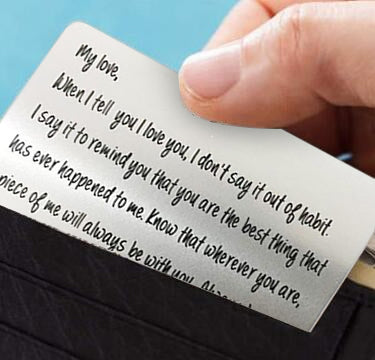 My love,
When I tell you I love you, I don't say it out of habit.
I say it to remind you that you are the best thing that
has ever happened to me. Know that wherever you are,
piece of me will always be with you.